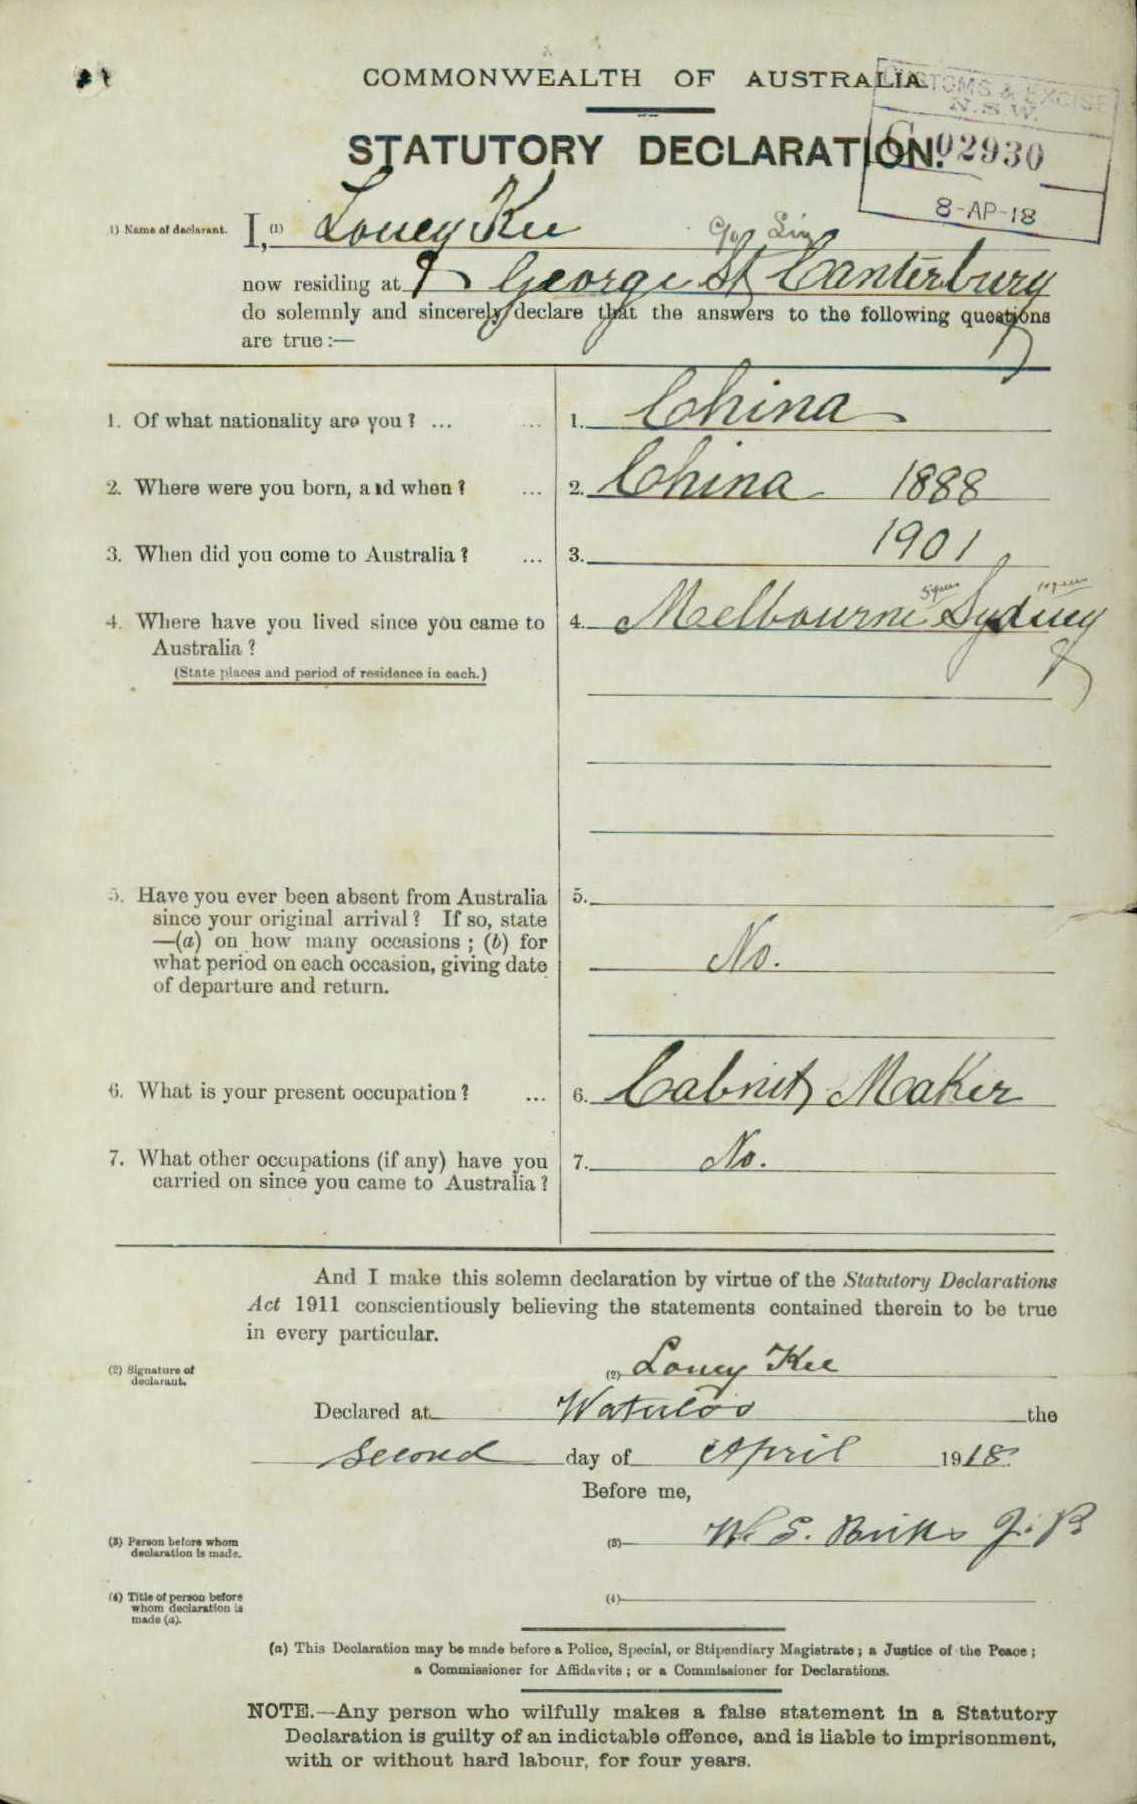 COMMONWEALTH OF AUSTRALIA.
CUSTOMS & EXCISE
N.S.W.
STATUTORY DECLARATION.
C 02930
8-AP-18
1) Name of declarant. I,(1) Louey Kee
now residing at George St Canterbury
do solemnly and sincerely declare that the answers to the following questions
are true :—
1. Of what nationality are you? ... ... 1. China
2. Where were you born, and when? ... 2. China 1888
3. When did you come to Australia? ... 3. 1901
4. Where have you lived since you came to 4. Melbourne Sydney
Australia?
(State places and period of residence in each.)
5. Have you ever been absent from Australia 5.
since your original arrival? If so, state
—(a) on how many occasions; (b) for No.
what period on each occasion, giving date
of departure and return.
6. What is your present occupation? ... 6. Cabnit Maker
7. What other occupations (if any) have you 7. No.
carried on since you came to Australia?
And I make this solemn declaration by virtue of the Statutory Declarations
Act 1911 conscientiously believing the statements contained therein to be true
in every particular.
(2) Signature of
declarant.
(2) Louey Kee
Declared at Waterloo the
Second day of April 1918
Before me,
(3) Person before whom
declaration is made.
(3) W. S. J.P.
(4) Title of person before
whom declaration is
made (a).
(4)
(a) This Declaration may be made before a Police, Special, or Stipendiary Magistrate; a Justice of the Peace;
a Commissioner for Affidavits; or a Commissioner for Declarations.
NOTE.—Any person who wilfully makes a false statement in a Statutory
Declaration is guilty of an indictable offence, and is liable to imprisonment,
with or without hard labour, for four years.